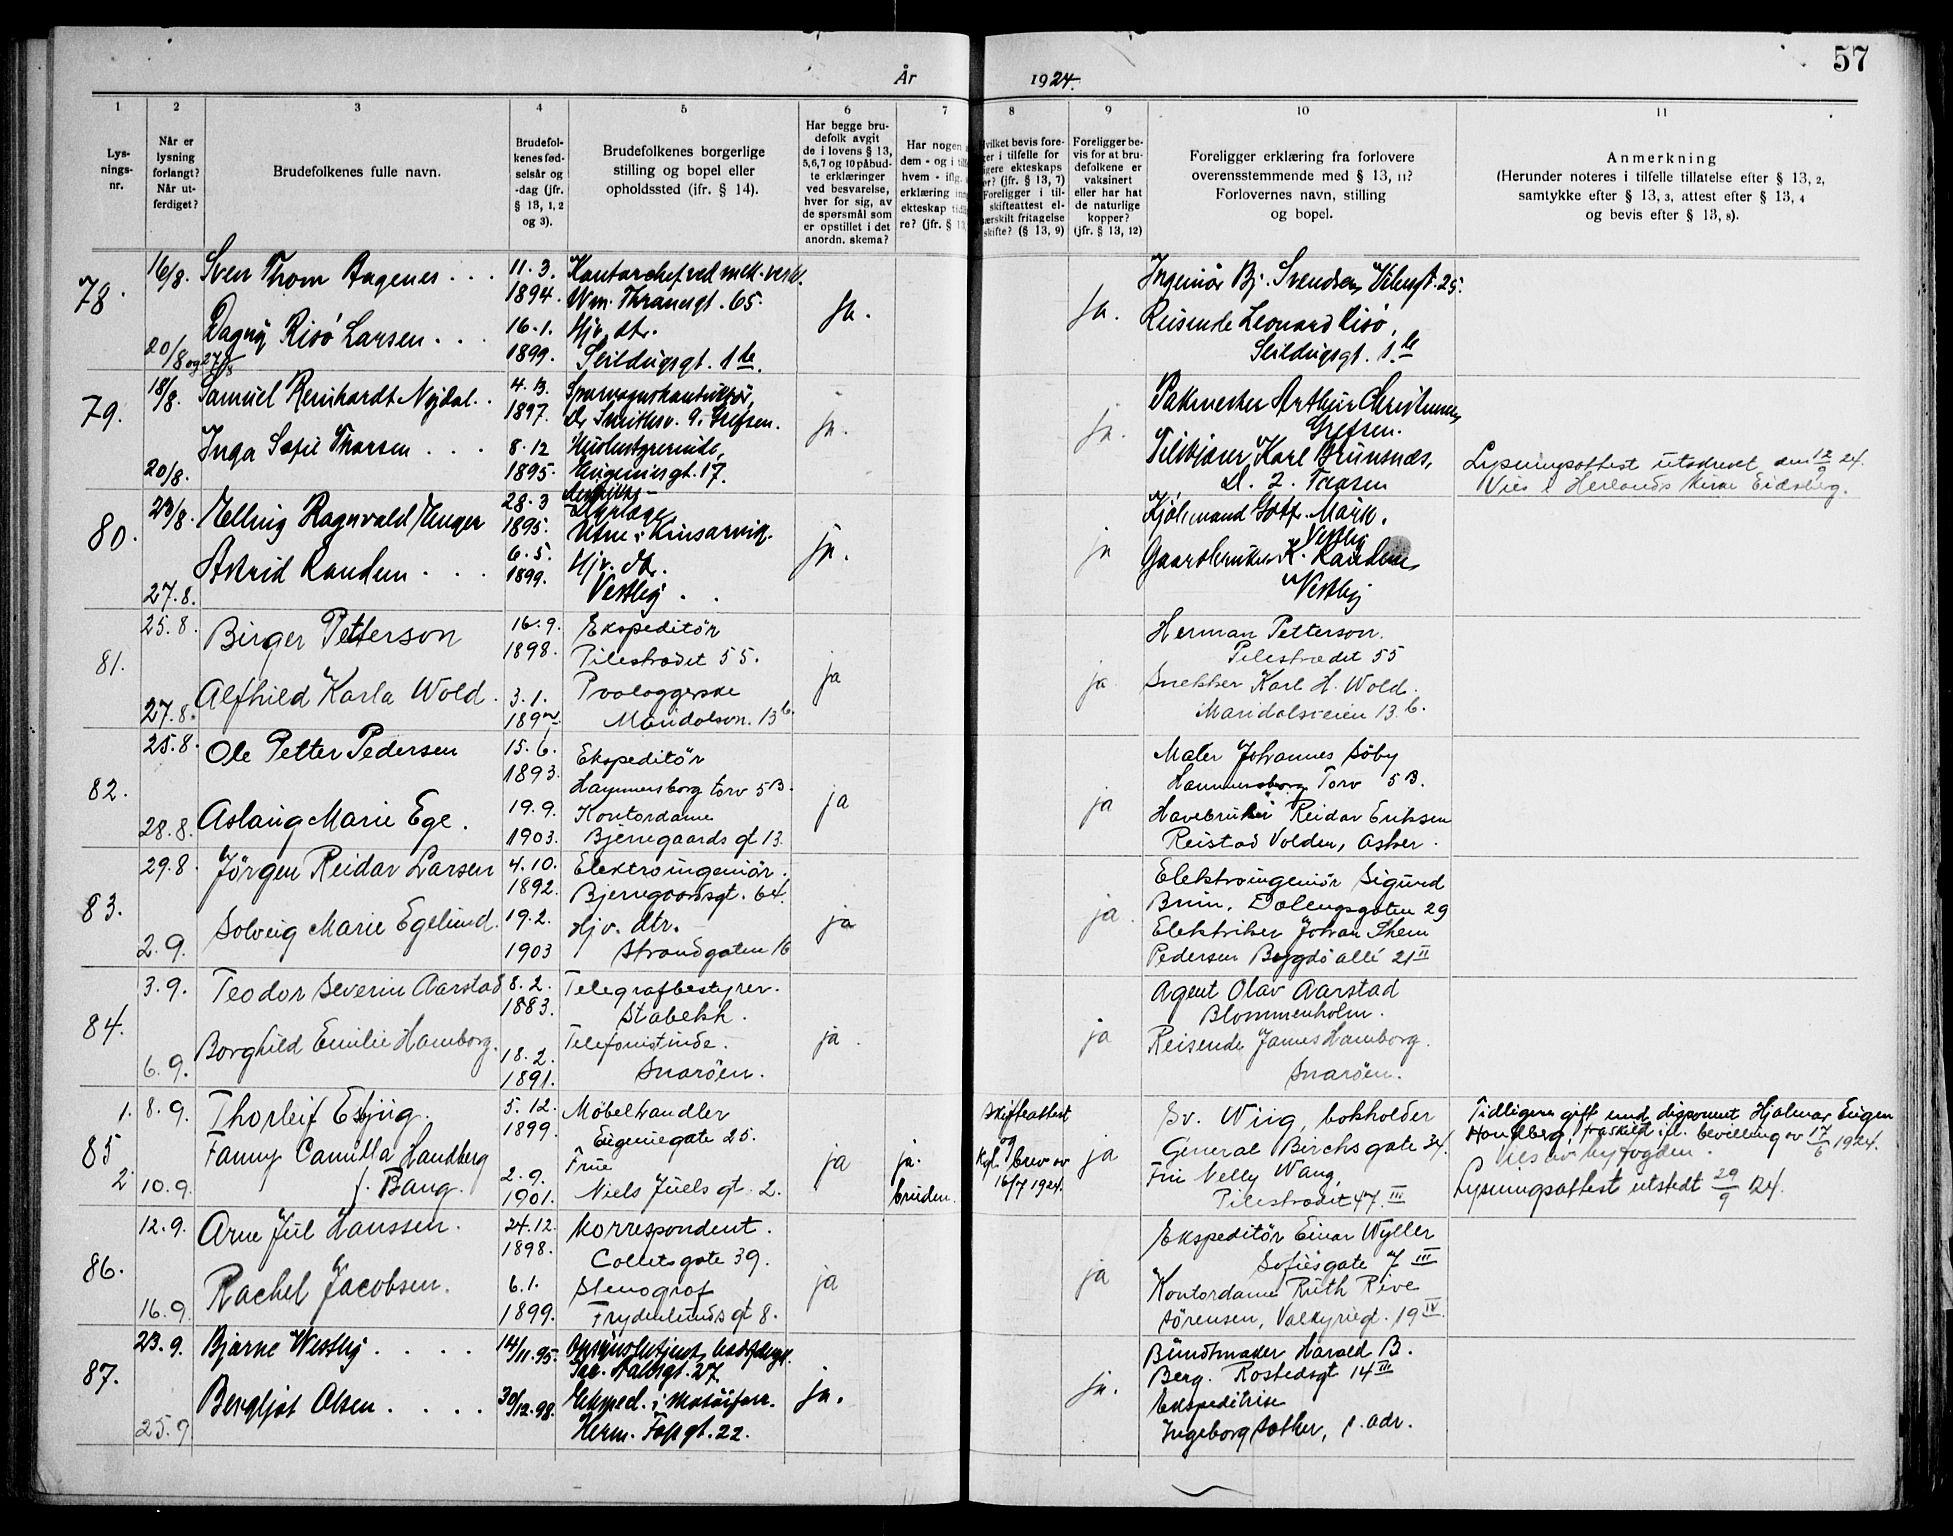 57
År 1924.
1 2 3 4 5 6 7 8 9 10 11
Lysningsnr.
Når er lysning forlangt? Når utferdiget?
Brudefolkenes fulle navn.
Brudefolkenes fødselsår og -dag (jfr. § 13, 1, 2 og 3).
Brudefolkenes borgerlige stilling og bopel eller opholdssted (jfr. § 14).
Har begge brudefolk avgit de i lovens § 13, 5, 6, 7 og 10 påbudte erklæringer ved besvarelse, hver for sig, av de spørsmål som er opstillet i det anordn. skema?
Har nogen
dem - og i
hvem - iflg.
erklæring
ekteskap
re? (jfr. § 13,
Hvilket bevis fore-
ger i tilfelle for
ligere ekteskaps
or? (jfr. § 13, 7)
Foreligger i til-
skifteattest el-
særskilt fritagelse
skifte? (§ 13, 9)
Foreligger bevis for at brudefolkene er vaksinert eller har hat de naturlige kopper? (jfr. § 13, 12)
Foreligger erklæring fra forlovere overensstemmende med § 13, 11? Forlovernes navn, stilling og bopel.
Anmerkning
(Herunder noteres i tilfelle tillatelse efter § 13, 2, samtykke efter § 13, 3, attest efter § 13, 4 og bevis efter § 13, 8).
78.
16/8. Sven Thom Aagenes 11.3. 1894. Kontorchef ved mek. verkst. Wm. Thranesgt. 65.
Ja. Ja.
Ingeniør Bj. Svendsen 25.
20/8 og 27/8 Dagny Risö Larsen 16.1. 1899. Hjv. dtr. Seildugsgt. 1 b.
Reisende Leonard Risö, Seildugsgt. 1 b
79.
18/8. Samuel Reinhardt Nydal. 4.3. 1897. Sporvognskonduktör, Dr. Smithsv. 9. Grefsen.
ja. ja.
Arthur Grefsen.
20/8. Inga Sofie Thorsen 8.12 1895. Eugeniesgt. 17.
Karl Grünsnæs, Taasen
Lysningsattest utskrevet den 12/9 24.
Vies i Herlands kirke Eidsberg.
80.
23/8. Elling Ragnvald Unger 28.3 1895. Dyrlæge, Utne i Kinsarvik.
ja. ja
Kjölmand Gotf. Mörk, Vestby
27.8. Astrid Randem 6.5. 1899. Hjv. dtr. Vestby
Gaardbruker K. Randem Vestby
81.
25.8 Birger Petterson 16.9. 1898. Ekspeditör Pilestrædet 55.
ja ja
Herman Petterson. Pilestrædet 55
27.8. Alfhild Karla Wold. 3.1. Maridalsvn. 13 b.
Snekker Karl H. Wold. Maridalsveien 13 b.
82.
25.8. Ole Petter Pedersen 15.6. 1893. Ekspeditör Hammersborg torv 5 B.
ja ja
Maler Johannes Söby Hammersborg Torv 5 B.
28.8. Aslaug Marie Ege. 19.9. 1903. Kontordame Bjerregaards gt 13.
Havebruker Reidar Eriksen Reistad Volden, Asker.
83.
29.8. Jörgen Reidar Larsen 4.10. 1892. Elektroingeniör. Bjerregaardsgt. 64.
ja ja.
Elektroingeniör Sigurd Dælengsgaten 29
2.9. Solveig Marie Egelund. 19.2. 1903 Hjv. dtr. Strandgaten 16
Elektriker Johan Pedersen Bygdö allé 21 II
84.
3.9. Teodor Severin Aarstad 8.2. 1883. Telegrafbestyrer. Stabekk.
ja. ja
Agent Olav Aarstad Blommenholm.
6.9. Borghild Emilie Hamborg. 18.2. 1891. Telefonistinde. Snaröen.
Reisende James Hamborg. Snaröen.
85
1. 8.9. Thorleif Esbjug. 5.12. 1899. Möbelhandler Eugeniegate 25.
ja ja. bruden. Skifteattest og Kgl. brev av 16/7 1924. ja
Sv. Wiig, bokholder General Birchsgate 34.
Tidligere gift med disponent Hjalmar Eugen Handberg, fraskilt ifl. bevilling av 17/6 1924.
Vies av byfogden.
2 10.9. Fanny Camilla Handberg f. Bang. 2.9. 1901. Frue Niels Juels gt. 2.
Fru Nelly Wang, Pilestrædet 47 III
Lysningsattest utstedt 29/9 24.
86.
12.9. Arne Jul Hanssen. 24.12. 1898. Korrespondent. Collettsgate 39.
ja ja
Ekspeditör Einar Wyller Sofiesgate 7 III
16.9. Rachel Jacobsen. 6.1. 1899. Stenograf Frydenlunds gt 8.
Kontordame Ruth Rive Sörensen, Valkyriegt. 19 IV.
87.
23.9. Bjarne Westby 14/11.95. 27
ja. ja.
Buntmaker Harald B. Berg. Rostedsgt 14 III
25.9 Bergljot Olsen 30/12.98. Eksped. i Herm. Fossgt. 22.
Ekspeditrise Ingeborg Sæther, s. adr.